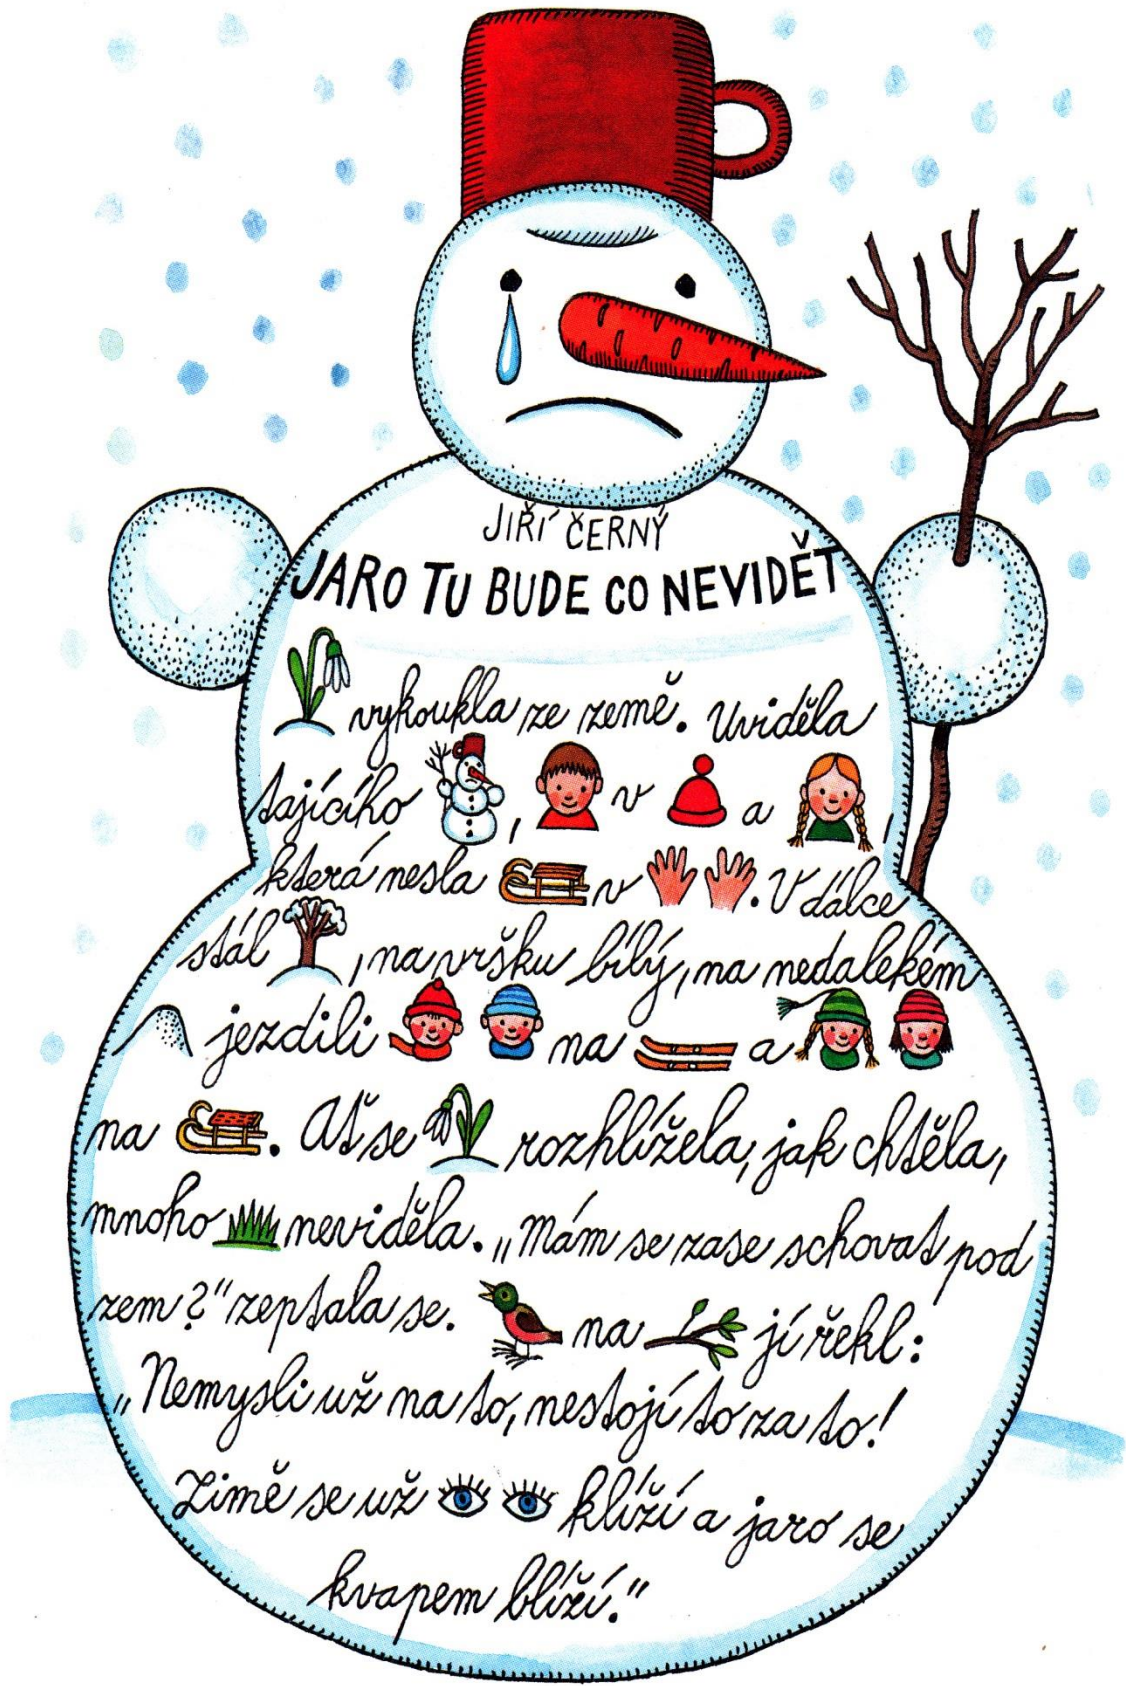 JIŘÍ ČERNÝ
JARO TU BUDE CO NEVIDĚT
vykoukla ze země. Uviděla
tajícího , v a ,
která nesla v . V dálce
stál , na vršku bílý, na nedalekém
jezdili na a
na . Ať se rozhlížela, jak chtěla,
mnoho neviděla. „Mám se zase schovat pod
zem?" zeptala se. na jí řekl:
„Nemysli už na to, nestojí to za to!
Zimě se už klíží a jaro se
kvapem blíží."